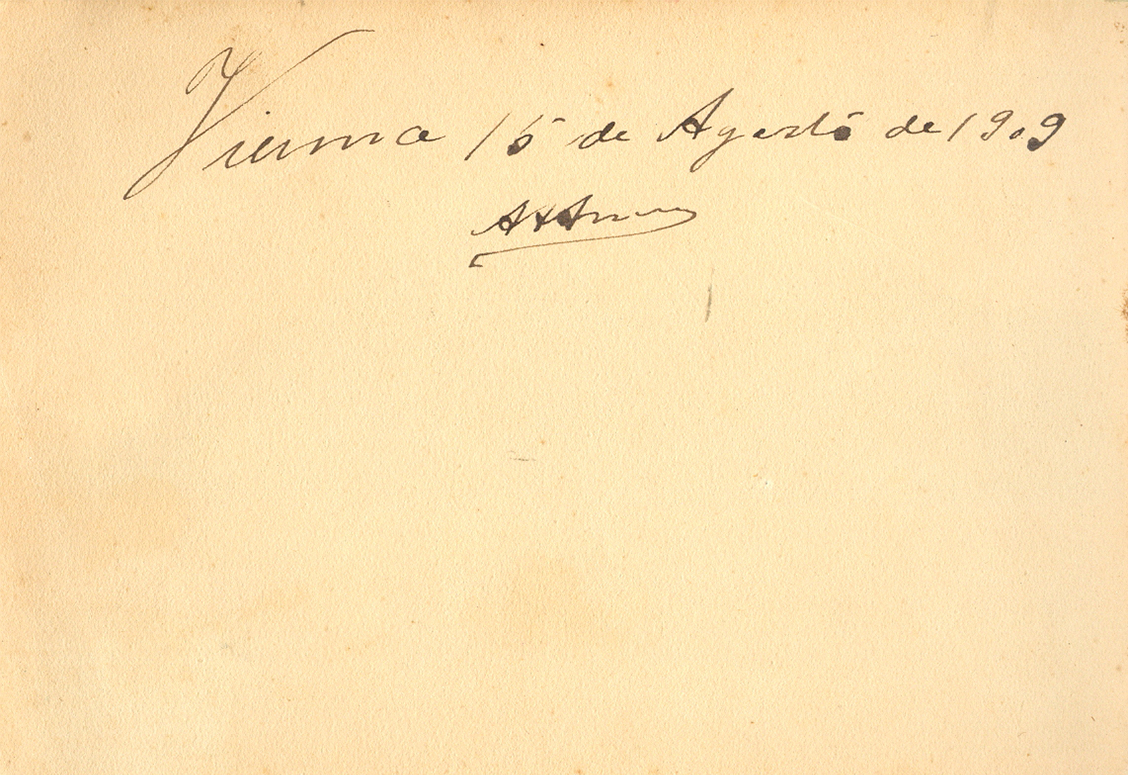 Vienna 15 de Agosto de 1909